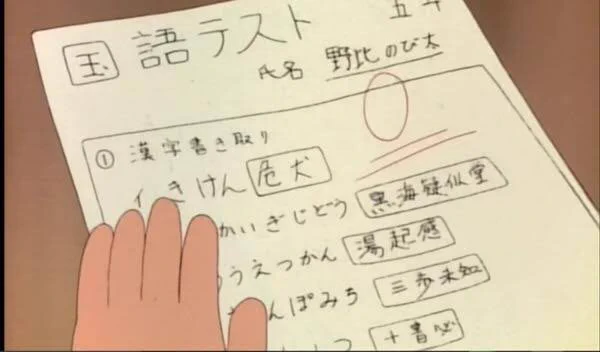 国語テスト
五
氏名 野比のび太
0
① 漢字書き取り
イ きけん 危犬
かいぎじどう 黒海疑似堂
うえつかん 湯起感
んぽみち 三歩未知
つ 十書